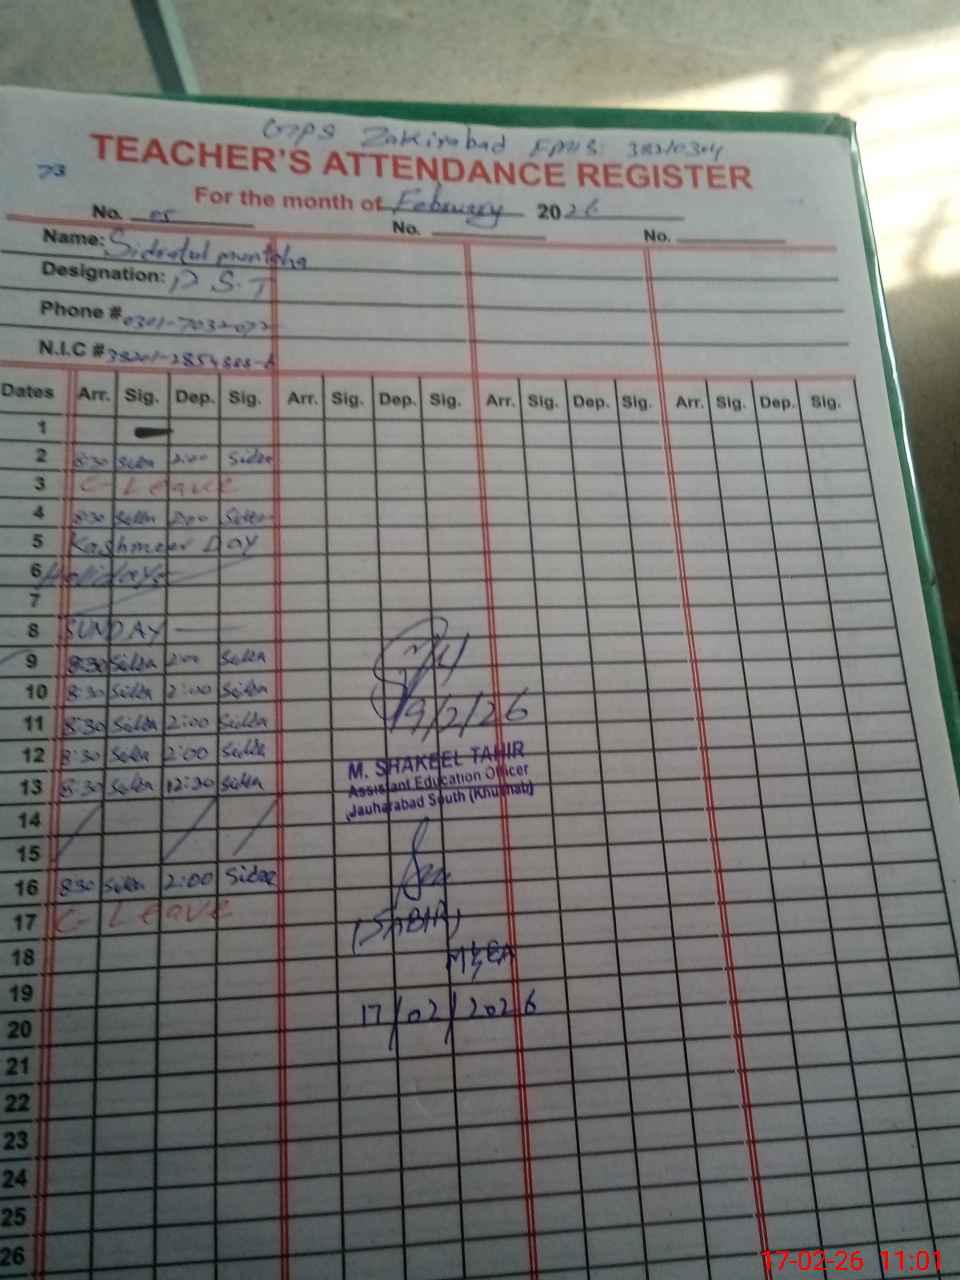 GPS Zakirabad EMIS: 38210304
TEACHER'S ATTENDANCE REGISTER
73
For the month of February 2026
No. 05 No. No.
Name: Sidratul muntaha
Designation: P.S.T
Phone # 0301-7032072
N.I.C #
Dates Arr. Sig. Dep. Sig. Arr. Sig. Dep. Sig. Arr. Sig. Dep. Sig. Arr. Sig. Dep. Sig.
1 -
2 8:30 Sidra 2:00 Sidra
3 C-Leave
4 8:30 Sidra 2:00 Sidra
5 Kashmeer Day
6 Holidays
7
8 SUNDAY
9 8:30 Sidra 2:00 Sidra
10 8:30 Sidra 2:00 Sidra
11 8:30 Sidra 2:00 Sidra
9/2/26
12 8:30 Sidra 2:00 Sidra
13 8:30 Sidra 12:30 Sidra
M. SHAKEEL TAHIR
Assistant Education Officer
Jauharabad South (Khushab)
14
15
16 8:30 Sidra 2:00 Sidra
17 C-Leave
(SABIR)
18
MEA
19
17/02/2026
20
21
22
23
24
25
26
17-02-26 11:01